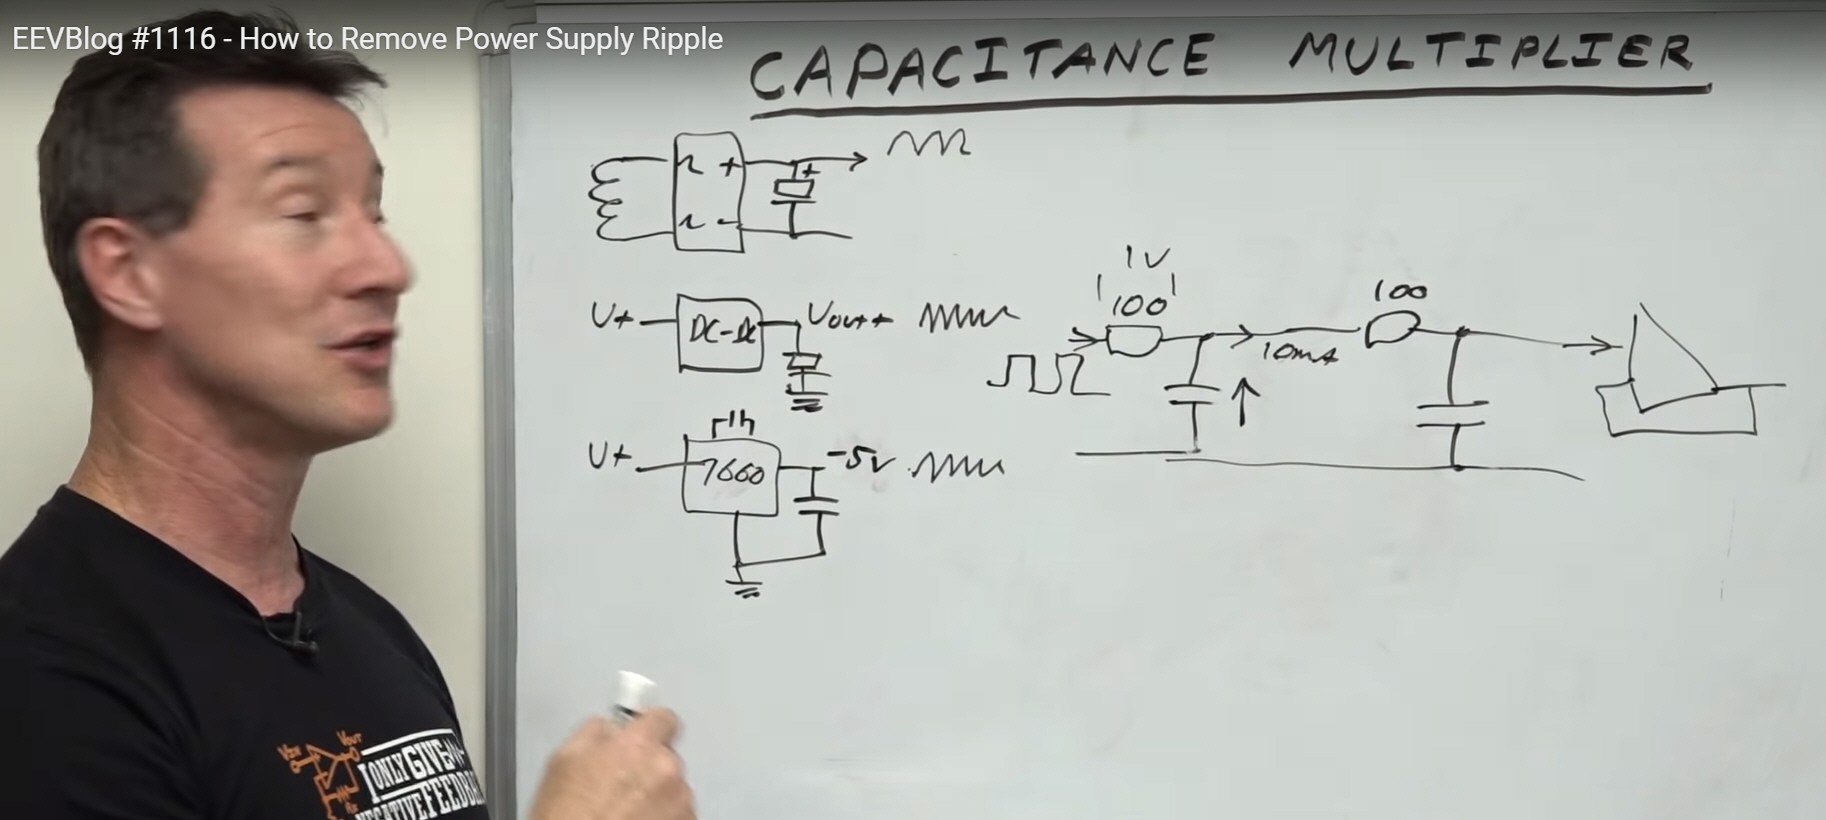 EEVBlog #1116 - How to Remove Power Supply Ripple
CAPACITANCE MULTIPLIER
~ +
~ -
+
V+ DC-DC Vout+
V+ 7660 -5V
1V
100
10mA
100
VIN VOUT
I ONLY GIVE
NEGATIVE FEEDBA